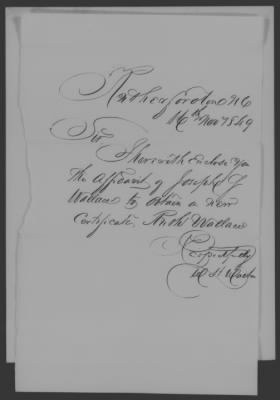 Rutherfordton NC
16th Nov 1849
Sir
I herewith enclose you
the affidavit of Joseph J
Wallace to obtain a new
Certificate,
Wallace
Respectfully